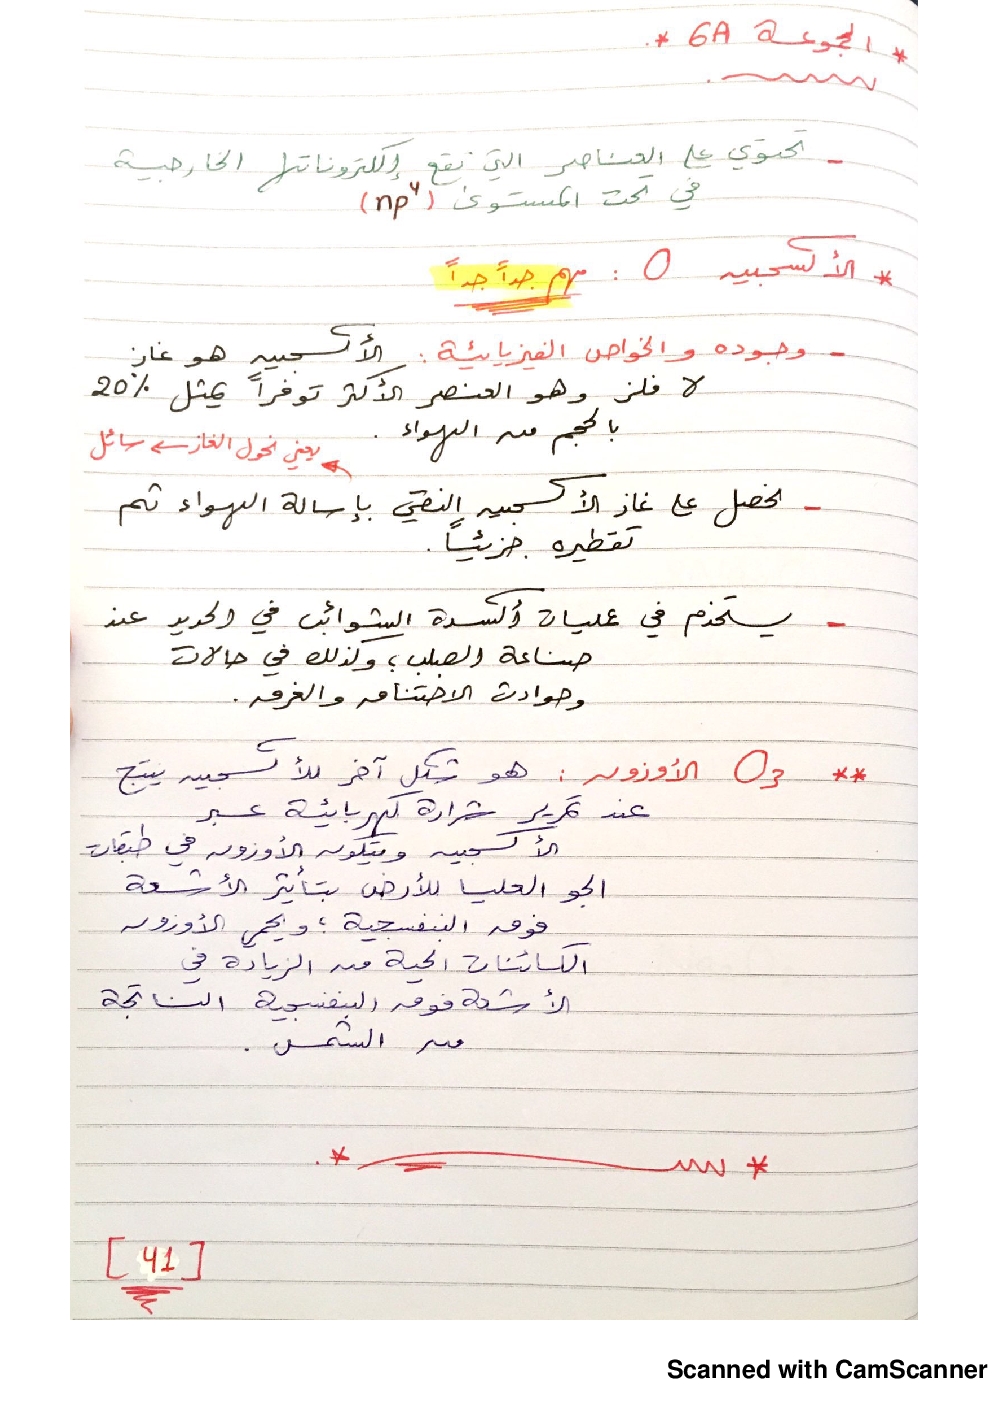 * المجموعة 6A *.
- تحتوي على العناصر التي تقع إلكتروناتها الخارجية
في تحت المستوى (np⁴)
* الأكسجين O : مهم جداً جداً
- وجوده والخواص الفيزيائية : الأكسجين هو غاز
لا فلز وهو العنصر الأكثر توفراً يمثل 20%
بالحجم من الهواء .
يعني تحول الغاز ← سائل
- نحصل على غاز الأكسجين النقي بإسالة الهواء ثم
تقطيره جزئياً .
- يستخدم في عمليات أكسدة الشوائب في الحديد عند
صناعة الصلب ؛ وكذلك في حالات
وحوادث الاختناق والغرق .
** O3 الأوزون : هو شكل آخر للأكسجين ينتج
عند تمرير شرارة كهربائية عبر
الأكسجين ويتكون الأوزون في طبقات
الجو العليا للأرض بتأثير الأشعة
فوق البنفسجية ؛ ويحمي الأوزون
الكائنات الحية من الزيادة في
الأشعة فوق البنفسجية الناتجة
من الشمس .
[41]
Scanned with CamScanner